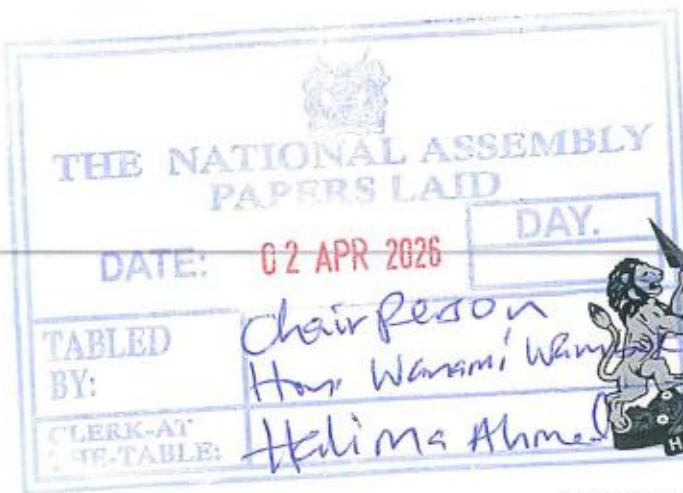 THE NATIONAL ASSEMBLY
PAPERS LAID
DAY.
DATE: 02 APR 2026
TABLED BY: Chairperson
Hon. Wanami
CLERK-AT THE-TABLE: Halima Ahmed
H